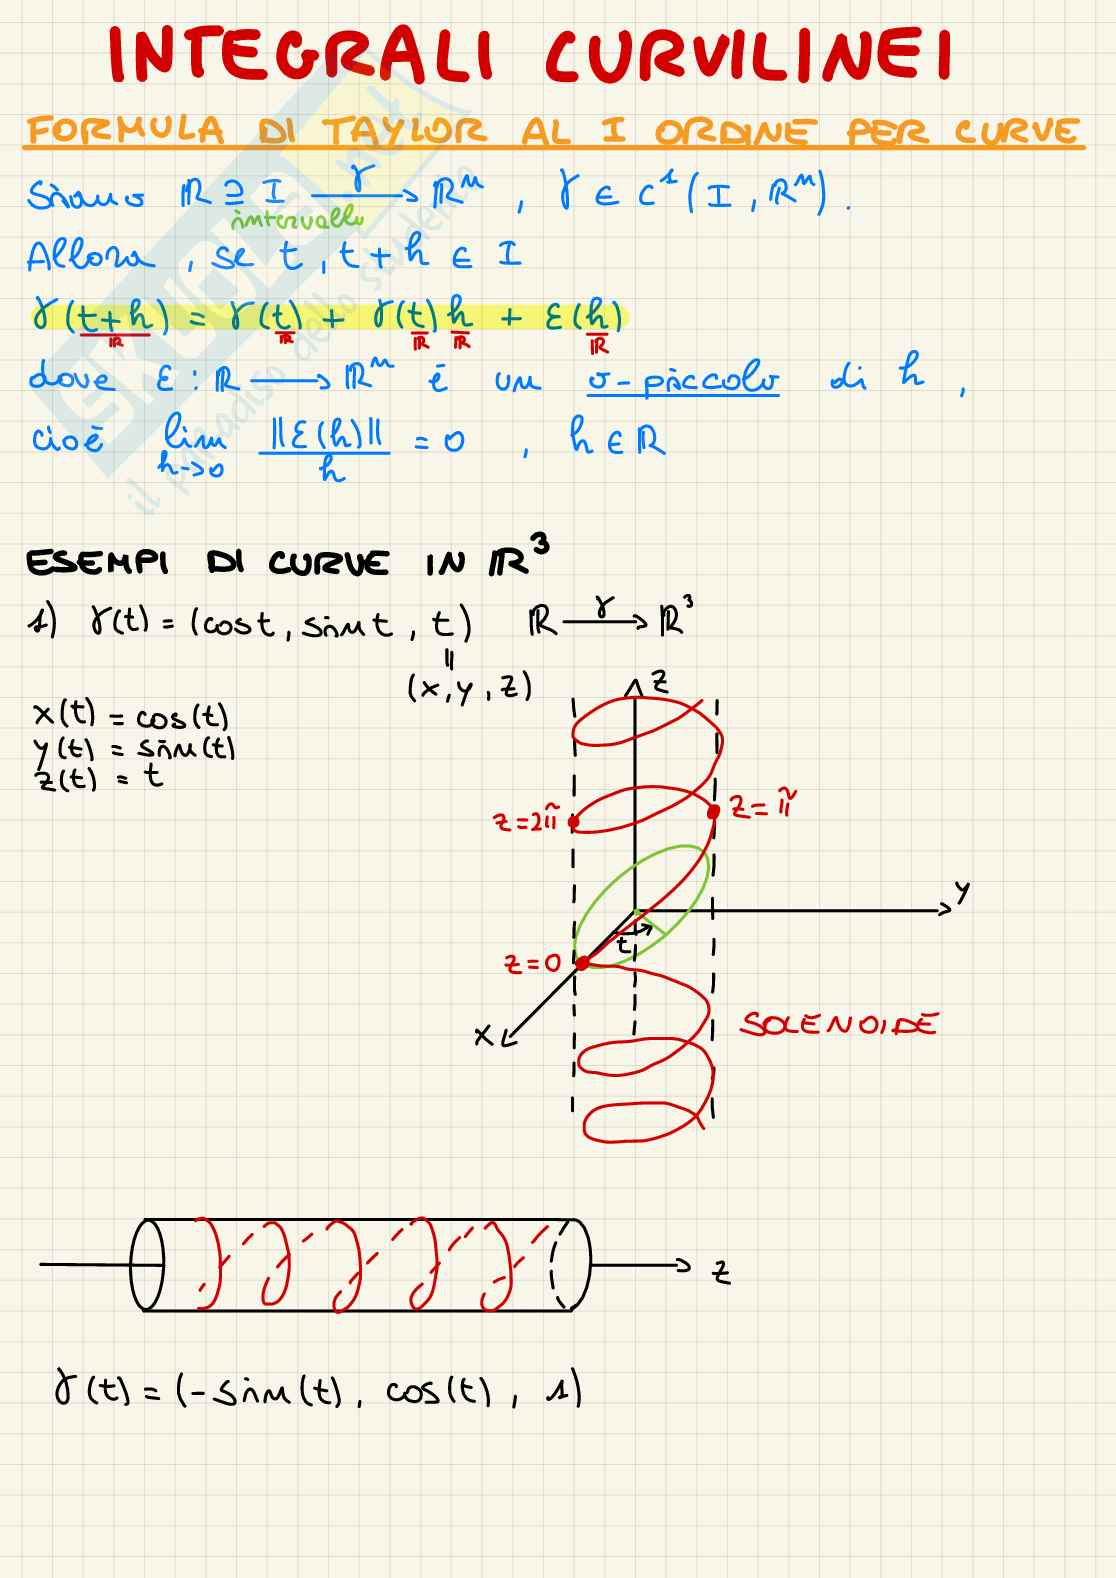 INTEGRALI CURVILINEI
FORMULA DI TAYLOR AL I ORDINE PER CURVE
Siano ℝ ⊇ I ⟶ ℝⁿ , γ ∈ C¹(I, ℝⁿ).
γ
intervallo
Allora, se t, t+h ∈ I
γ(t+h) = γ(t) + γ(t)h + ε(h)
ℝ ℝ ℝ ℝ ℝ
dove ε: ℝ ⟶ ℝⁿ è un o-piccolo di h,
cioè lim h→0 ||ε(h)||/h = 0 , h ∈ ℝ
ESEMPI DI CURVE IN ℝ³
1) γ(t) = (cost, sint, t) ℝ ⟶ ℝ³
γ
=
(x, y, z)
x(t) = cos(t)
y(t) = sin(t)
z(t) = t
z
z=2π
z=π
y
t
z=0
x
SOLENOIDE
z
γ(t) = (-sin(t), cos(t), 1)
SKUOLA.net
il paradiso dello studente